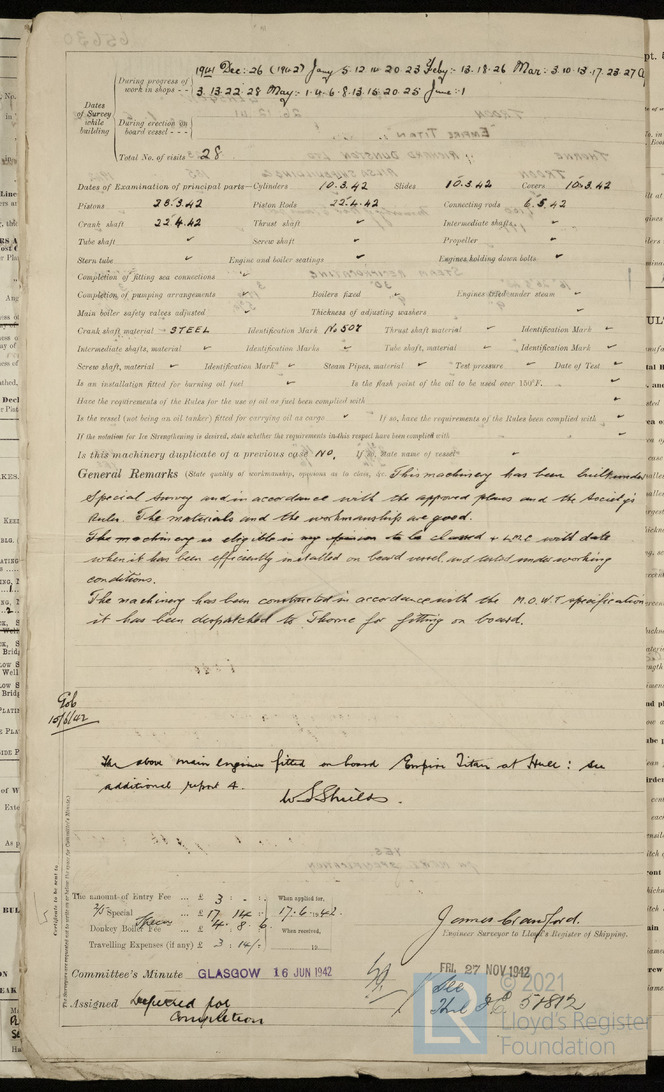 1941 Dec: 26 (1942) Jany 5. 12. 14. 20. 23 Feby:- 13. 18. 26 Mar: 3. 10. 13. 17. 23. 27
3. 13. 22. 28 May:- 1. 4. 6. 8. 13. 15. 20. 25 June:- 1
Dates of Survey while building
During progress of work in shops - -
During erection on board vessel - - -
Total No. of visits 28
Dates of Examination of principal parts—Cylinders 10.3.42 Slides 10.3.42 Covers 10.3.42
Pistons 23.3.42 Piston Rods 22.4.42 Connecting rods 6.5.42
Crank shaft 22.4.42 Thrust shaft ✓ Intermediate shafts ✓
Tube shaft ✓ Screw shaft ✓ Propeller ✓
Stern tube ✓ Engine and boiler seatings ✓ Engines holding down bolts ✓
Completion of fitting sea connections ✓
Completion of pumping arrangements ✓ Boilers fixed ✓ Engines tried under steam ✓
Main boiler safety valves adjusted ✓ Thickness of adjusting washers ✓
Crank shaft material STEEL Identification Mark No 507 Thrust shaft material ✓ Identification Mark ✓
Intermediate shafts, material ✓ Identification Marks ✓ Tube shaft, material ✓ Identification Mark ✓
Screw shaft, material ✓ Identification Mark ✓ Steam Pipes, material ✓ Test pressure ✓ Date of Test ✓
Is an installation fitted for burning oil fuel ✓ Is the flash point of the oil to be used over 150°F. ✓
Have the requirements of the Rules for the use of oil as fuel been complied with ✓
Is the vessel (not being an oil tanker) fitted for carrying oil as cargo ✓ If so, have the requirements of the Rules been complied with ✓
If the notation for Ice Strengthening is desired, state whether the requirements in this respect have been complied with ✓
Is this machinery duplicate of a previous case NO. If so, state name of vessel ✓
General Remarks (State quality of workmanship, opinions as to class, &c. This machinery has been built under
Special Survey and in accordance with the approved plans and the Society's
Rules. The materials and the workmanship are good.
The machinery is eligible in my opinion to be classed + LMC with date
when it has been efficiently installed on board vessel and tested under working
conditions.
The machinery has been constructed in accordance with the M.O.W.T specification
it has been despatched to Thorne for fitting on board.
15/6/42
The above main engines fitted on board Empire Titan at Hull: see
additional report 4.
W S Shields.
Certificate to be sent to
The amount of Entry Fee ... £ 3 : - : When applied for,
Special ... £ 17 : 14 : 17.6.1942.
Donkey Boiler Fee ... £ 4 : 8 : 6 When received,
Travelling Expenses (if any) £ 3 : 14/- 19
James Crawford.
Engineer Surveyor to Lloyd's Register of Shipping.
Committee's Minute GLASGOW 16 JUN 1942 FRI. 27 NOV 1942
Assigned Deferred for
completion
See
Hul J.E 51812
LR
© 2021
Lloyd's Register
Foundation